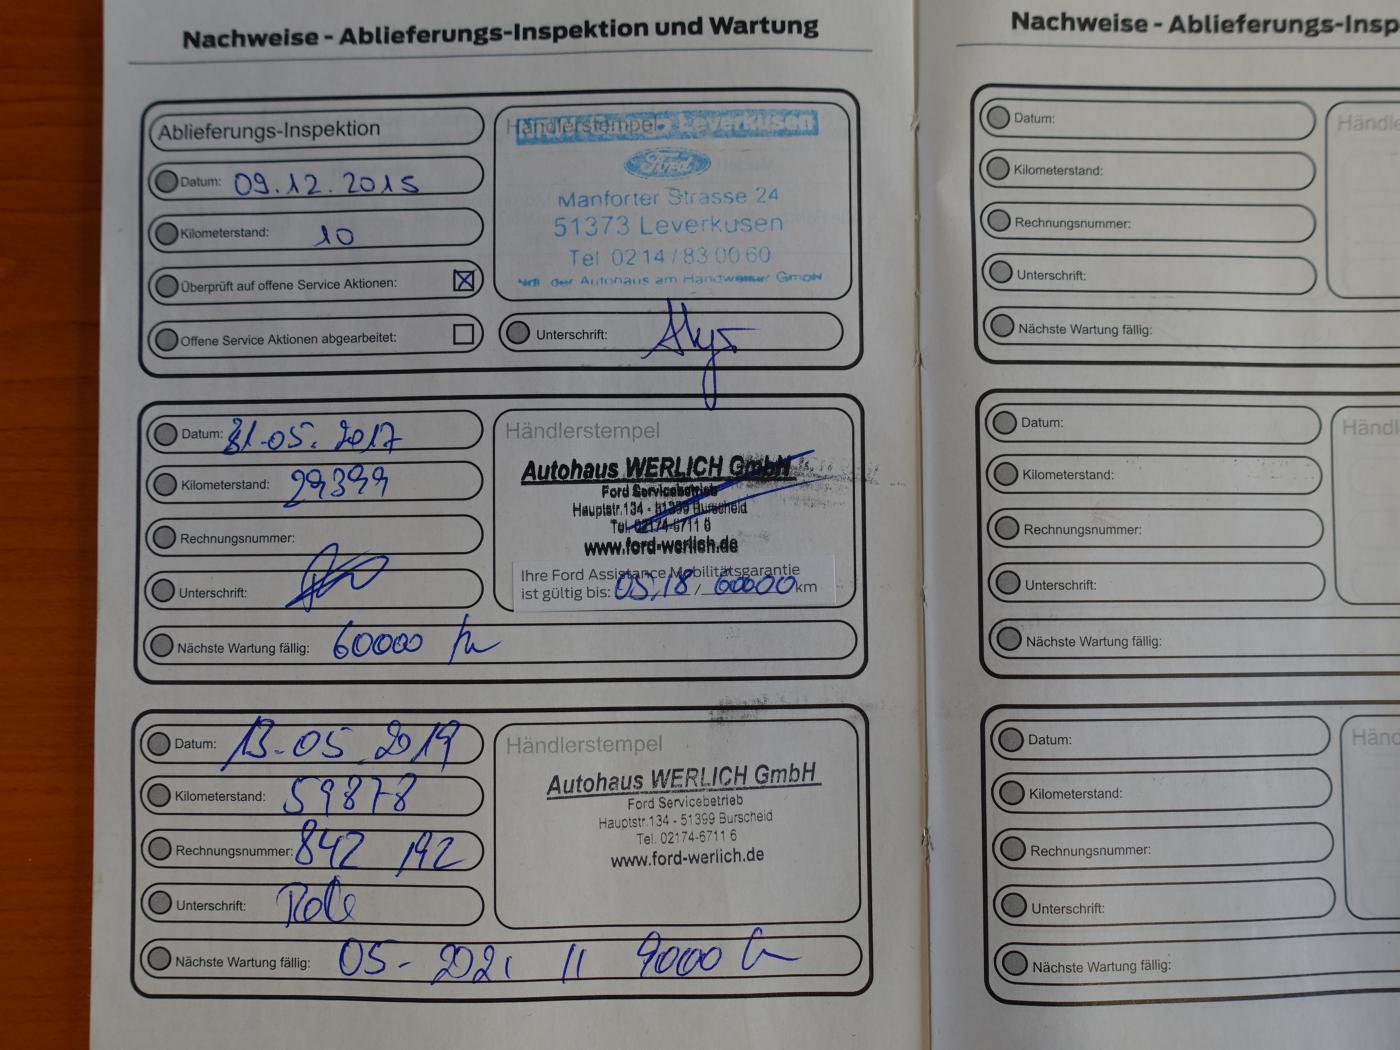 Nachweise - Ablieferungs-Inspektion und Wartung
Ablieferungs-Inspektion
Datum: 09.12.2015
Kilometerstand: 10
Überprüft auf offene Service Aktionen: ☒
Offene Service Aktionen abgearbeitet: ☐
Händlerstempel
Leverkusen
Ford
Manforter Strasse 24
51373 Leverkusen
Tel 0214/830060
der Autohaus am Handweiser GmbH
Unterschrift:
Datum: 31.05.2017
Kilometerstand: 29399
Rechnungsnummer:
Unterschrift:
Nächste Wartung fällig: 60000 km
Händlerstempel
Autohaus WERLICH GmbH
Ford Servicebetrieb
Hauptstr.134 - 51399 Burscheid
Tel. 02174-6711 6
www.ford-werlich.de
Ihre Ford Assistance Mobilitätsgarantie
ist gültig bis: 05,18 / 60000 km
Datum: 13-05.2019
Kilometerstand: 59878
Rechnungsnummer: 842 192
Unterschrift:
Nächste Wartung fällig: 05-2021 // 9000 km
Händlerstempel
Autohaus WERLICH GmbH
Ford Servicebetrieb
Hauptstr.134 - 51399 Burscheid
Tel. 02174-6711 6
www.ford-werlich.de
Nachweise - Ablieferungs-Insp
Datum:
Kilometerstand:
Rechnungsnummer:
Unterschrift:
Nächste Wartung fällig:
Händle
Datum:
Kilometerstand:
Rechnungsnummer:
Unterschrift:
Nächste Wartung fällig:
Händl
Datum:
Kilometerstand:
Rechnungsnummer:
Unterschrift:
Nächste Wartung fällig:
Händ